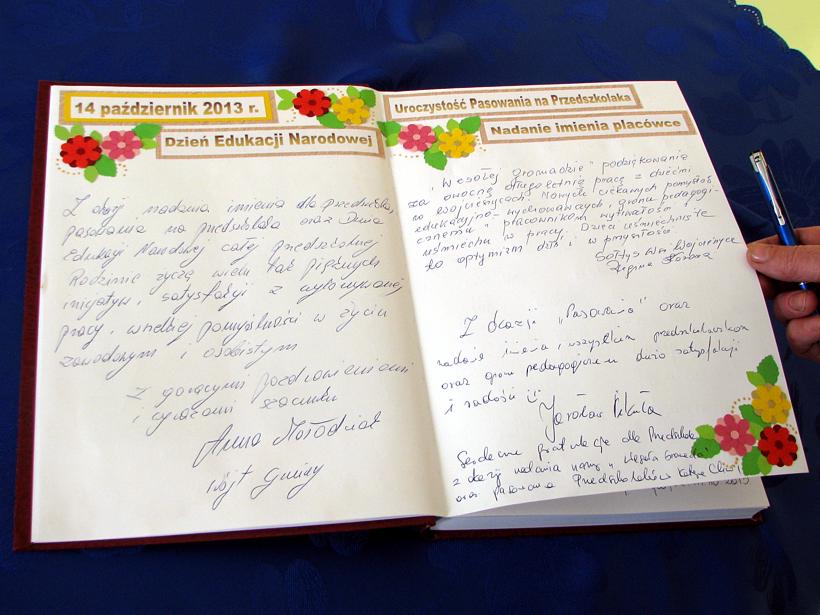 14 październik 2013 r.
Dzień Edukacji Narodowej
Z okazji nadania imienia dla przedszkola,
pasowania na przedszkolaka oraz Dnia
Edukacji Narodowej całej przedszkolnej
Rodzinie życzę wielu tak pięknych
inicjatyw, satysfakcji z wykonywanej
pracy, wszelkiej pomyślności w życiu
zawodowym i osobistym
Z gorącymi pozdrowieniami
i wyrazami szacunku
Anna Mołodziak
Wójt Gminy
Uroczystość Pasowania na Przedszkolaka
Nadanie imienia placówce
"Wesołej Gromadzie" podziękowania
za owocną długoletnią pracę z dziećmi
w Wojcieszycach! Nowych ciekawych pomysłów
edukacyjno-wychowawczych, gronu pedagogi-
cznemu i pracownikom wytrwałości
uśmiechu w pracy. Dzieci uśmiechnięte
to optymizm dziś i w przyszłości.
Sołtys Wsi Wojcieszyce
Regina
Z okazji "Pasowania" oraz
nadania imienia, wszystkim przedszkolakom
oraz gronu pedagogicznemu dużo satysfakcji
i radości
Jarosław
Serdeczne gratulacje dla Przedszkola
z okazji nadania nazwy "Wesoła Gromada"
oraz pasowania Przedszkolaków
2013